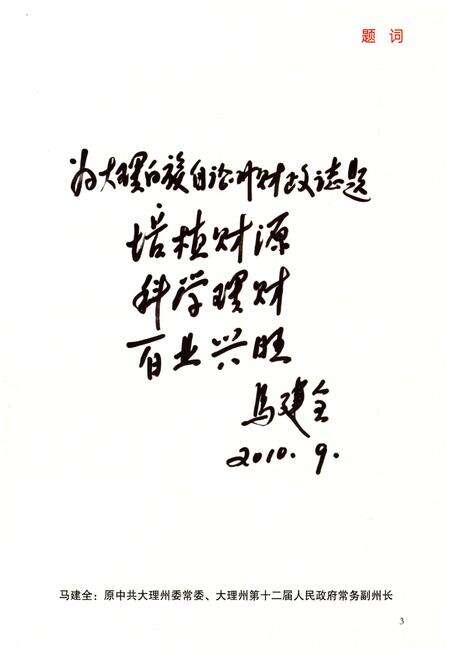 题 词
为大理白族自治州财政志题
培植财源
科学理财
百业兴旺
马建全
2010.9.
马建全：原中共大理州委常委、大理州第十二届人民政府常务副州长
3